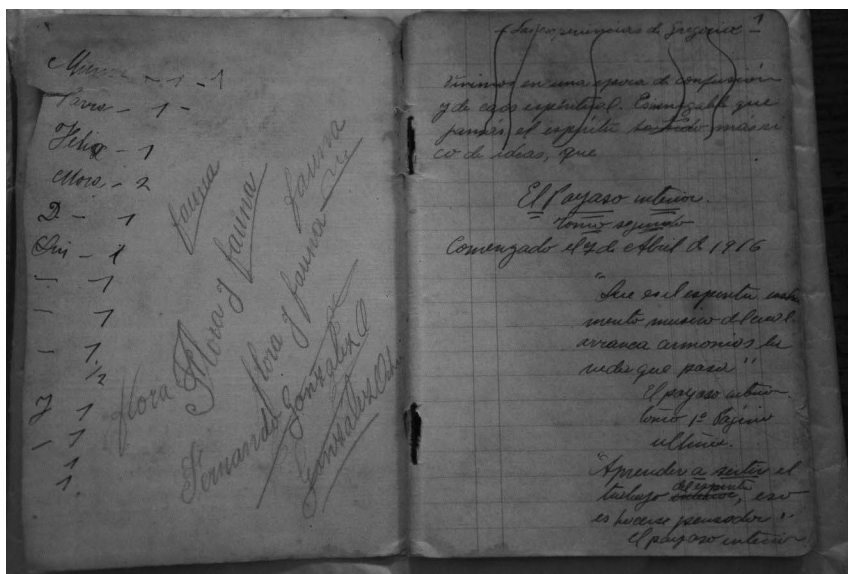 - 1 - 1
- 1 -
Felix - 1
Mora - 2
D. - 1
- 1
- 1
- 1
- 1
1/2
J 1
- 1
1
1
fauna
fauna
Flora y fauna
flora
flora y fauna
Fernando Gonzalez O
Gonzalez Ochoa
1
Las experiencias de Gregorio
Vivimos en una epoca de confusión
y de caos espiritual. Es innegable que
jamás el espiritu ha sido más ri
co de ideas, que
El Payaso interior.
Tomo segundo
Comenzado el 7 de Abril de 1916
"Que es el espiritu instru
mento musico del cual
arranca armonias la
vida que pasa"
El payaso interior.
Tomo 1º Página
ultima.
"Aprender a sentir el
trabajo del espiritu, eso
es hacerse pensador".
El payaso interior